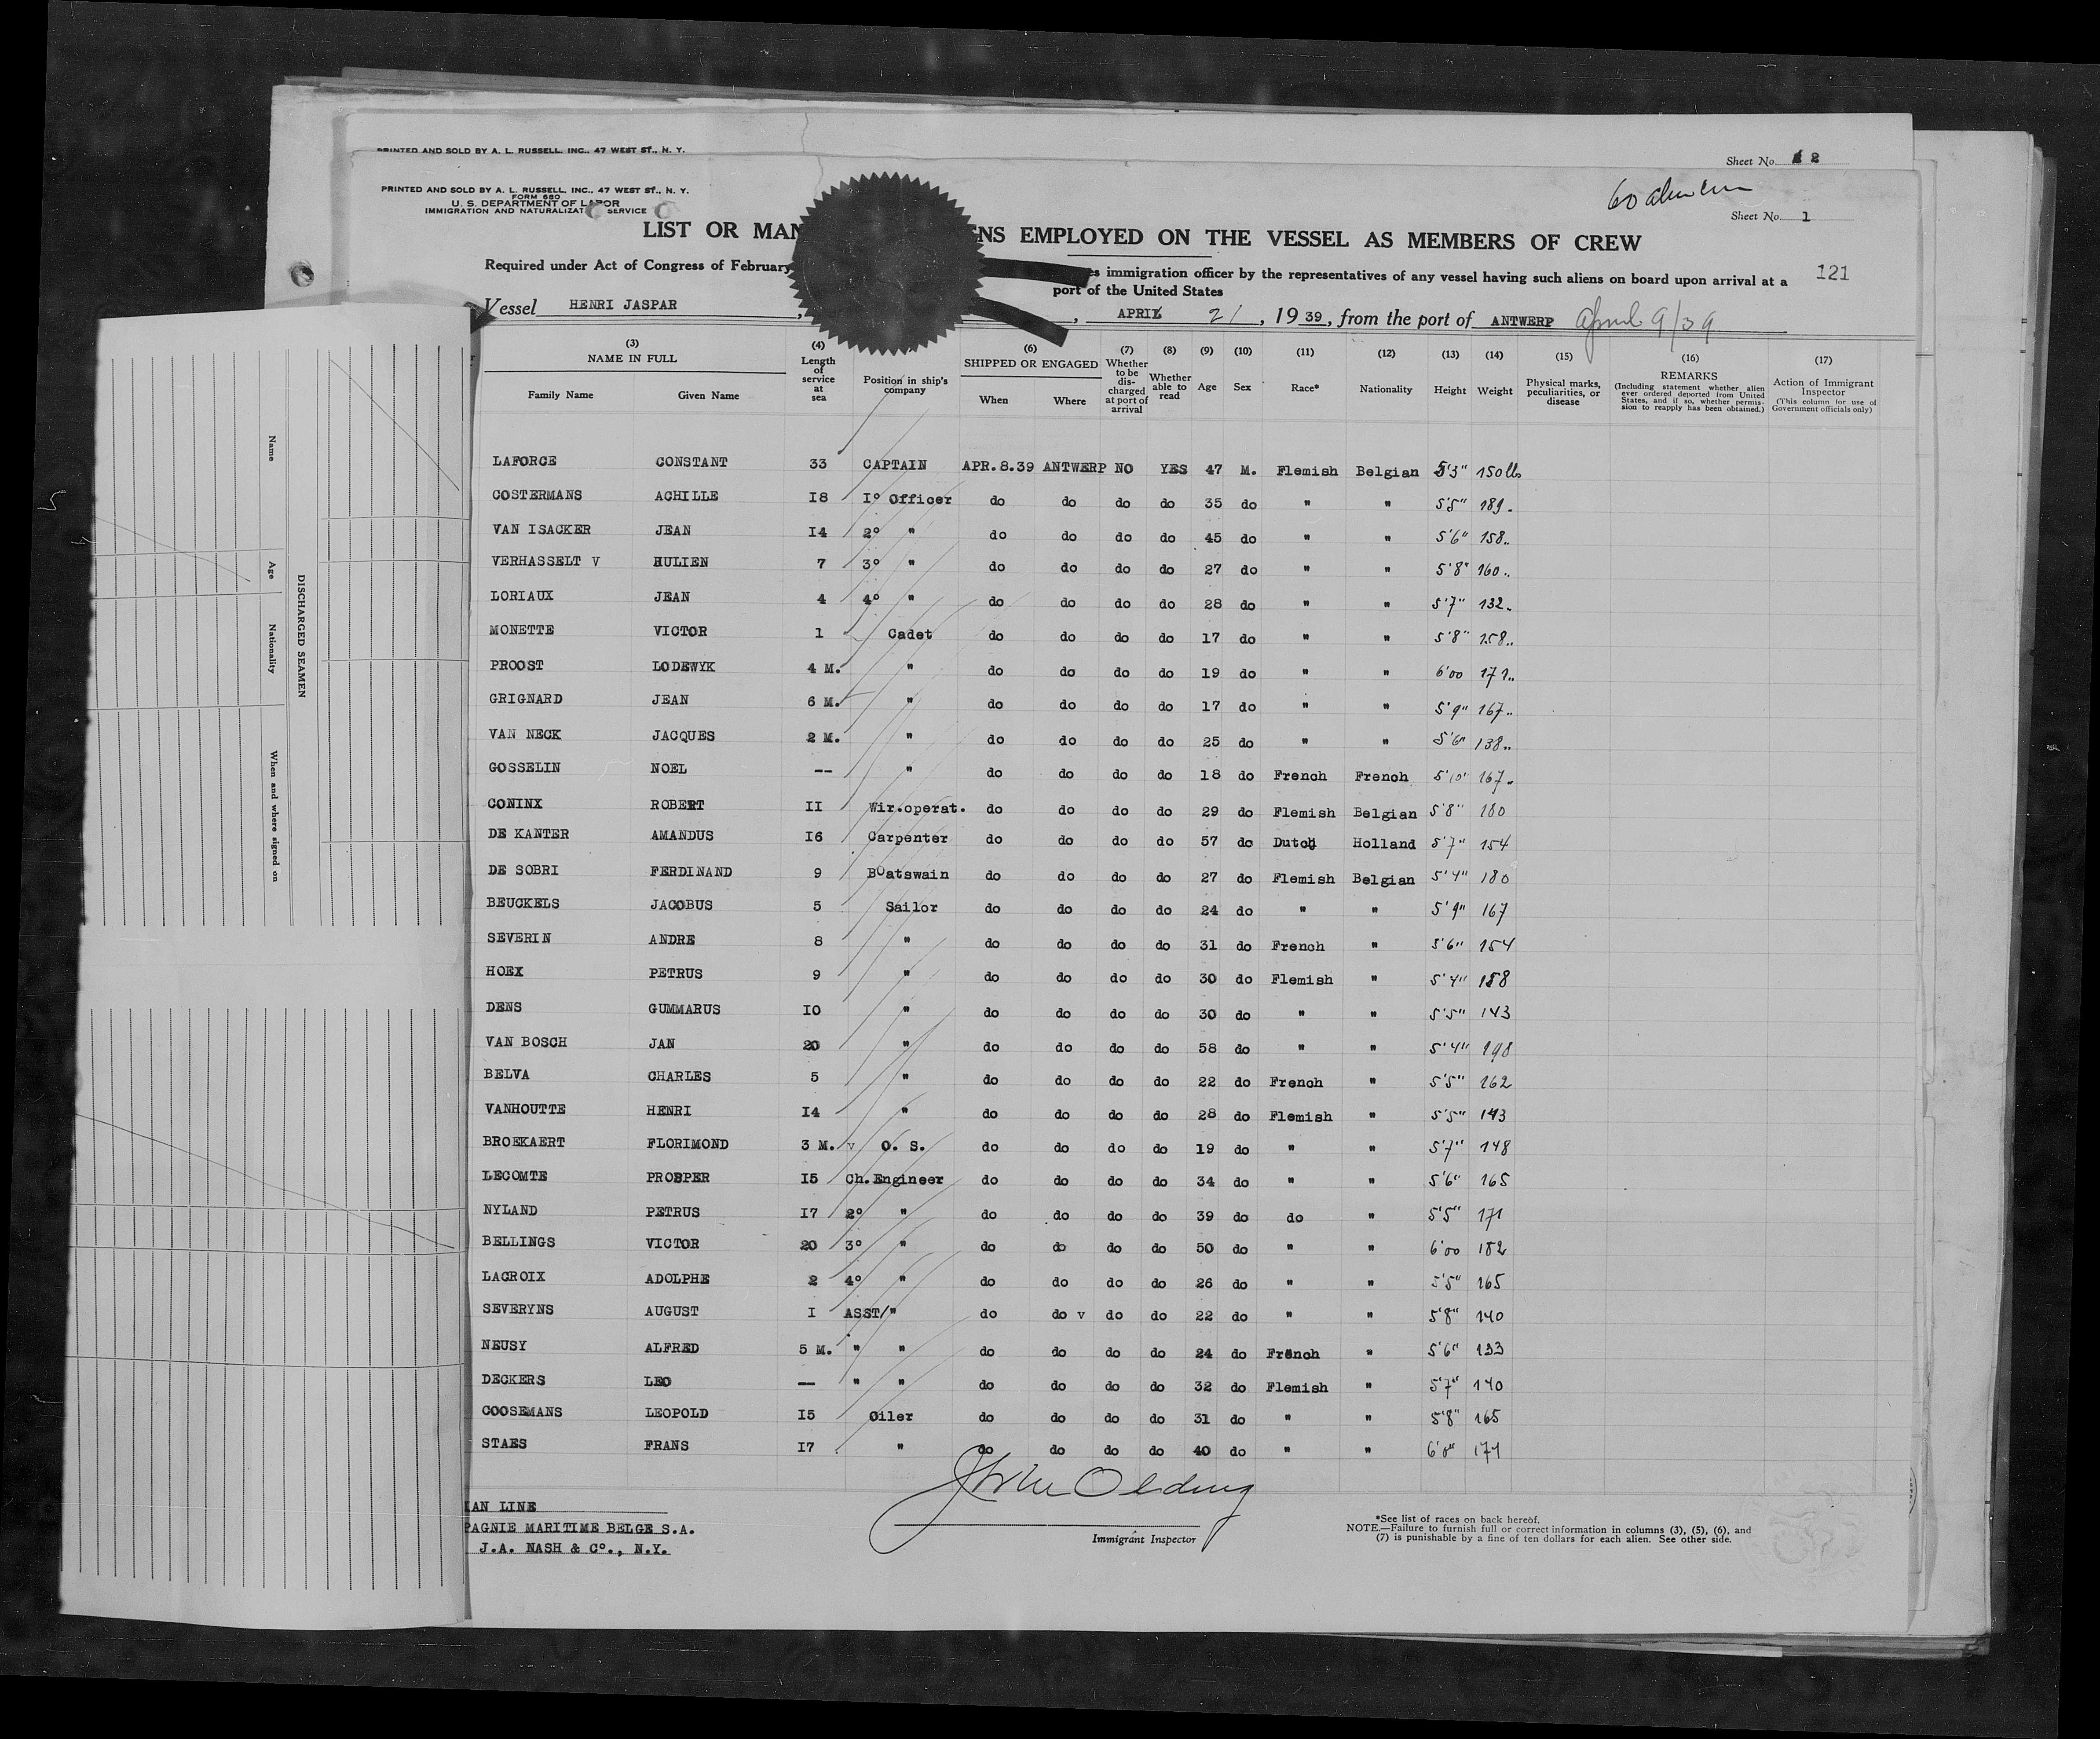 PRINTED AND SOLD BY A. L. RUSSELL. INC., 47 WEST ST., N. Y.
Sheet No. 2
PRINTED AND SOLD BY A. L. RUSSELL, INC., 47 WEST ST., N. Y.
FORM 680
U. S. DEPARTMENT OF LABOR
IMMIGRATION AND NATURALIZAT SERVICE
60
Sheet No. 1
LIST OR MAN NS EMPLOYED ON THE VESSEL AS MEMBERS OF CREW
Required under Act of Congress of February es immigration officer by the representatives of any vessel having such aliens on board upon arrival at a
port of the United States
121
Vessel HENRI JASPAR, , APRIL 21, 19 39, from the port of ANTWERP April 9/39
(3) (4) (6) (7) (8) (9) (10) (11) (12) (13) (14) (15) (16) (17)
NAME IN FULL Length of service at sea Position in ship's company SHIPPED OR ENGAGED Whether to be discharged at port of arrival Whether able to read Age Sex Race* Nationality Height Weight Physical marks, peculiarities, or disease REMARKS (Including statement whether alien ever ordered deported from United States, and if so, whether permission to reapply has been obtained.) Action of Immigrant Inspector (This column for use of Government officials only)
Family Name Given Name When Where
LAFORCE CONSTANT 33 CAPTAIN APR.8.39 ANTWERP NO YES 47 M. Flemish Belgian 5'3" 150 lb
COSTERMANS ACHILLE I8 I° Officer do do do do 35 do " " 5'5" 189
VAN ISACKER JEAN I4 2° " do do do do 45 do " " 5'6" 158
VERHASSELT V HULIEN 7 3° " do do do do 27 do " " 5'8" 160
LORIAUX JEAN 4 4° " do do do do 28 do " " 5'7" 132
MONETTE VICTOR 1 Cadet do do do do 17 do " " 5'8" 158
PROOST LODEWYK 4 M. " do do do do 19 do " " 6'00 171
GRIGNARD JEAN 6 M. " do do do do 17 do " " 5'9" 167
VAN NECK JACQUES 2 M. " do do do do 25 do " " 5'6" 138
GOSSELIN NOEL -- " do do do do 18 do French French 5'10" 167
CONINX ROBERT II Wir.operat. do do do do 29 do Flemish Belgian 5'8" 180
DE KANTER AMANDUS I6 Carpenter do do do do 57 do Dutch Holland 5'7" 154
DE SOBRI FERDINAND 9 BOatswain do do do do 27 do Flemish Belgian 5'4" 180
BEUCKELS JACOBUS 5 Sailor do do do do 24 do " " 5'9" 167
SEVERIN ANDRE 8 " do do do do 31 do French " 5'6" 154
HOEX PETRUS 9 " do do do do 30 do Flemish " 5'4" 158
DENS GUMMARUS IO " do do do do 30 do " " 5'5" 143
VAN BOSCH JAN 20 " do do do do 58 do " " 5'4" 198
BELVA CHARLES 5 " do do do do 22 do French " 5'5" 162
VANHOUTTE HENRI I4 " do do do do 28 do Flemish " 5'5" 143
BROEKAERT FLORIMOND 3 M. v O. S. do do do do 19 do " " 5'7" 148
LECOMTE PROSPER I5 Ch.Engineer do do do do 34 do " " 5'6" 165
NYLAND PETRUS I7 2° " do do do do 39 do do " 5'5" 171
BELLINGS VICTOR 20 3° " do do do do 50 do " " 6'00 182
LACROIX ADOLPHE 2 4° " do do do do 26 do " " 5'5" 165
SEVERYNS AUGUST I ASST/" do do v do do 22 do " " 5'8" 140
NEUSY ALFRED 5 M. " " do do do do 24 do French " 5'6" 133
DECKERS LEO -- " " do do do do 32 do Flemish " 5'7" 140
COOSEMANS LEOPOLD I5 Oiler do do do do 31 do " " 5'8" 165
STAES FRANS I7 " do do do do 40 do " " 6'0" 171
IAN LINE
PAGNIE MARITIME BELGE S.A.
J.A. NASH & C°., N.Y.
Immigrant Inspector
*See list of races on back hereof.
NOTE.—Failure to furnish full or correct information in columns (3), (5), (6), and
(7) is punishable by a fine of ten dollars for each alien. See other side.
DISCHARGED SEAMEN
Name
Age
Nationality
When and where signed on